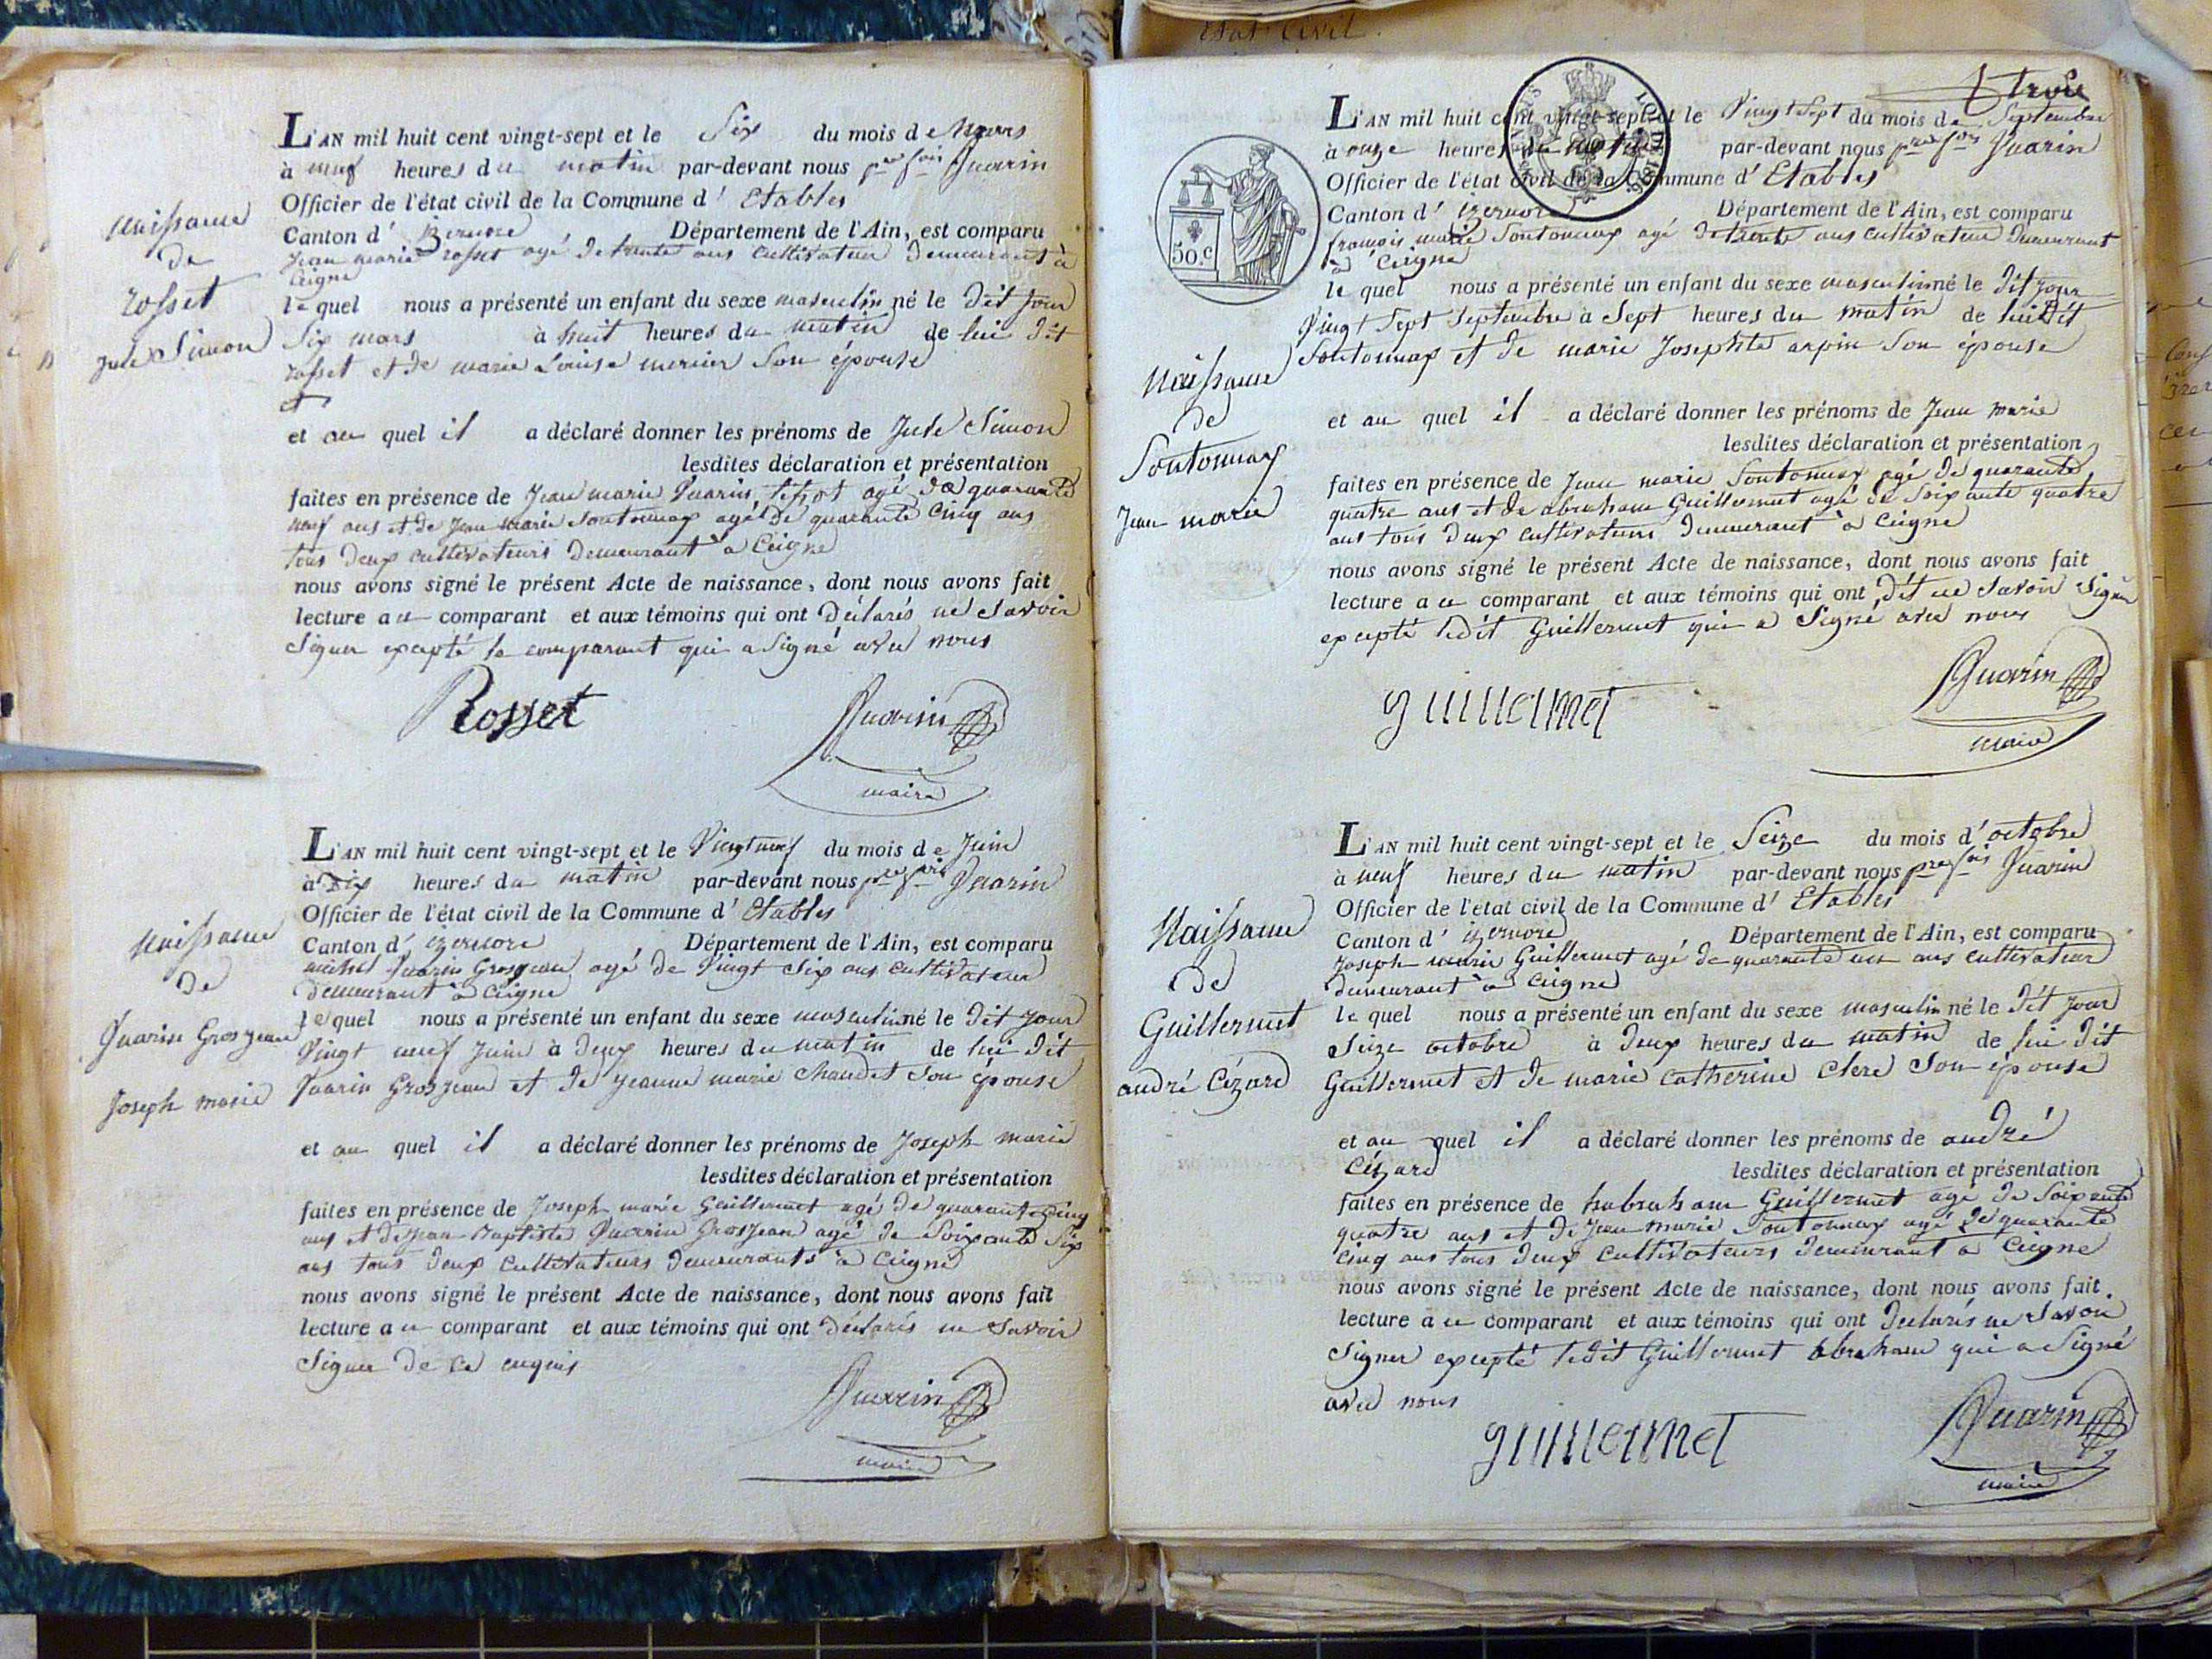 Naissance
de
rosset
Jule Simon
L'AN mil huit cent vingt-sept et le Six du mois de Mars
à neuf heures du matin par-devant nous pre fois Quarin
Officier de l'état civil de la Commune d' Etables
Canton d' izernore Département de l'Ain, est comparu
Jean marie rosset agé de trente ans Cultivateur Demeurant à
Ceigne
le quel nous a présenté un enfant du sexe masculin né le Dit jour
Six mars à huit heures du matin de lui Dit
rosset et de marie Louise mercier Son épouse
et
et au quel il a déclaré donner les prénoms de Jule Simon
lesdites déclaration et présentation
faites en présence de Jean marie Quarin agé de quarante
neuf ans et de Jean marie Sontonnax agé De quarante Cinq ans
tous Deux cultivateurs Demeurant à Ceigne
nous avons signé le présent Acte de naissance, dont nous avons fait
lecture au comparant et aux témoins qui ont Déclarés ne Savoir
Signer excepté le comparant qui a Signé avec nous
Rosset
Quarin
maire
Naissance
de
Quarin Grosjean
Joseph marie
L'AN mil huit cent vingt-sept et le Vingt neuf du mois de Juin
à Dix heures du matin par-devant nous pre fois Quarin
Officier de l'état civil de la Commune d' Etables
Canton d' izernore Département de l'Ain, est comparu
michel Quarin Grosjean agé de Vingt Six ans cultivateur
Demeurant à Ceigne
le quel nous a présenté un enfant du sexe masculin né le Dit jour
Vingt neuf Juin à Deux heures du matin de lui Dit
Quarin Grosjean et de jeanne marie Chaudet Son épouse
et au quel il a déclaré donner les prénoms de Joseph marie
lesdites déclaration et présentation
faites en présence de Joseph marie Guillermet agé de quarante Cinq
ans et de Jean Baptiste Quarin Grosjean agé de Soixante Six
ans tous Deux Cultivateurs Demeurants à Ceigne
nous avons signé le présent Acte de naissance, dont nous avons fait
lecture au comparant et aux témoins qui ont Déclarés ne Savoir
Signer De ce enquis
Quarin
maire
trois
50.c
L'AN mil huit cent vingt-sept et le Vingt Sept du mois de Septembre
à onze heures du matin par-devant nous pre fois Quarin
Officier de l'état civil de la Commune d' Etables
Canton d' izernore Département de l'Ain, est comparu
françois marie Sontonnax agé de trente ans cultivateur Demeurant
à Ceigne
le quel nous a présenté un enfant du sexe masculin né le Dit jour
Vingt Sept Septembre à Sept heures du matin de lui Dit
Sontonnax et de marie Josephte arpin Son épouse
Naissance
de
Sontonnax
Jean marie
et au quel il a déclaré donner les prénoms de Jean marie
lesdites déclaration et présentation
faites en présence de Jean marie Sontonnax agé de quarante
quatre ans et de abraham Guillermet agé de Soixante quatre
ans tous Deux cultivateurs Demeurant à Ceigne
nous avons signé le présent Acte de naissance, dont nous avons fait
lecture au comparant et aux témoins qui ont Dit ne Savoir Signer
excepté ledit Guillermet qui a Signé avec nous
guillermet
Quarin
maire
L'AN mil huit cent vingt-sept et le Seize du mois d'octobre
à neuf heures du matin par-devant nous pre fois Quarin
Officier de l'état civil de la Commune d' Etables
Canton d' izernore Département de l'Ain, est comparu
Joseph marie Guillermet agé de quarante un ans cultivateur
demeurant à Ceigne
le quel nous a présenté un enfant du sexe masculin né le Dit jour
Seize octobre à Deux heures du matin de lui Dit
Guillermet et de marie Catherine Clerc Son épouse
Naissance
de
Guillermet
andré Cézard
et au quel il a déclaré donner les prénoms de andré
Cézard lesdites déclaration et présentation
faites en présence de habraham Guillermet agé de Soixante
quatre ans et de Jean marie Sontonnax agé de quarante
Cinq ans tous Deux Cultivateurs Demeurant à Ceigne
nous avons signé le présent Acte de naissance, dont nous avons fait
lecture au comparant et aux témoins qui ont Déclarés ne Savoir
Signer excepté ledit Guillermet abraham qui a Signé
avec nous
guillermet
Quarin
maire